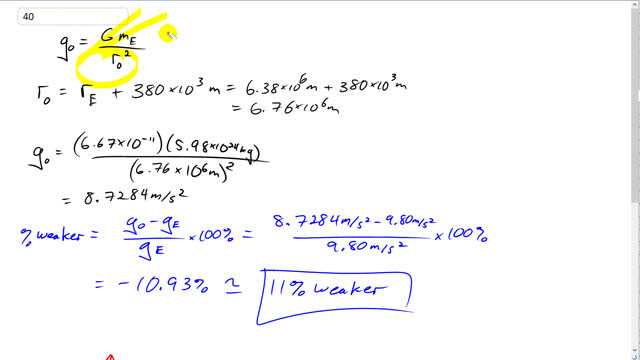 40
g₀ = G m_E / r₀²
r₀ = r_E + 380×10³ m = 6.38×10⁶ m + 380×10³ m
= 6.76×10⁶ m
g₀ = (6.67×10⁻¹¹)(5.98×10²⁴ kg) / (6.76×10⁶ m)²
= 8.7284 m/s²
% weaker = g₀ − g_E / g_E × 100% = 8.7284 m/s² − 9.80 m/s² / 9.80 m/s² × 100%
= −10.93% ≃ 11% weaker